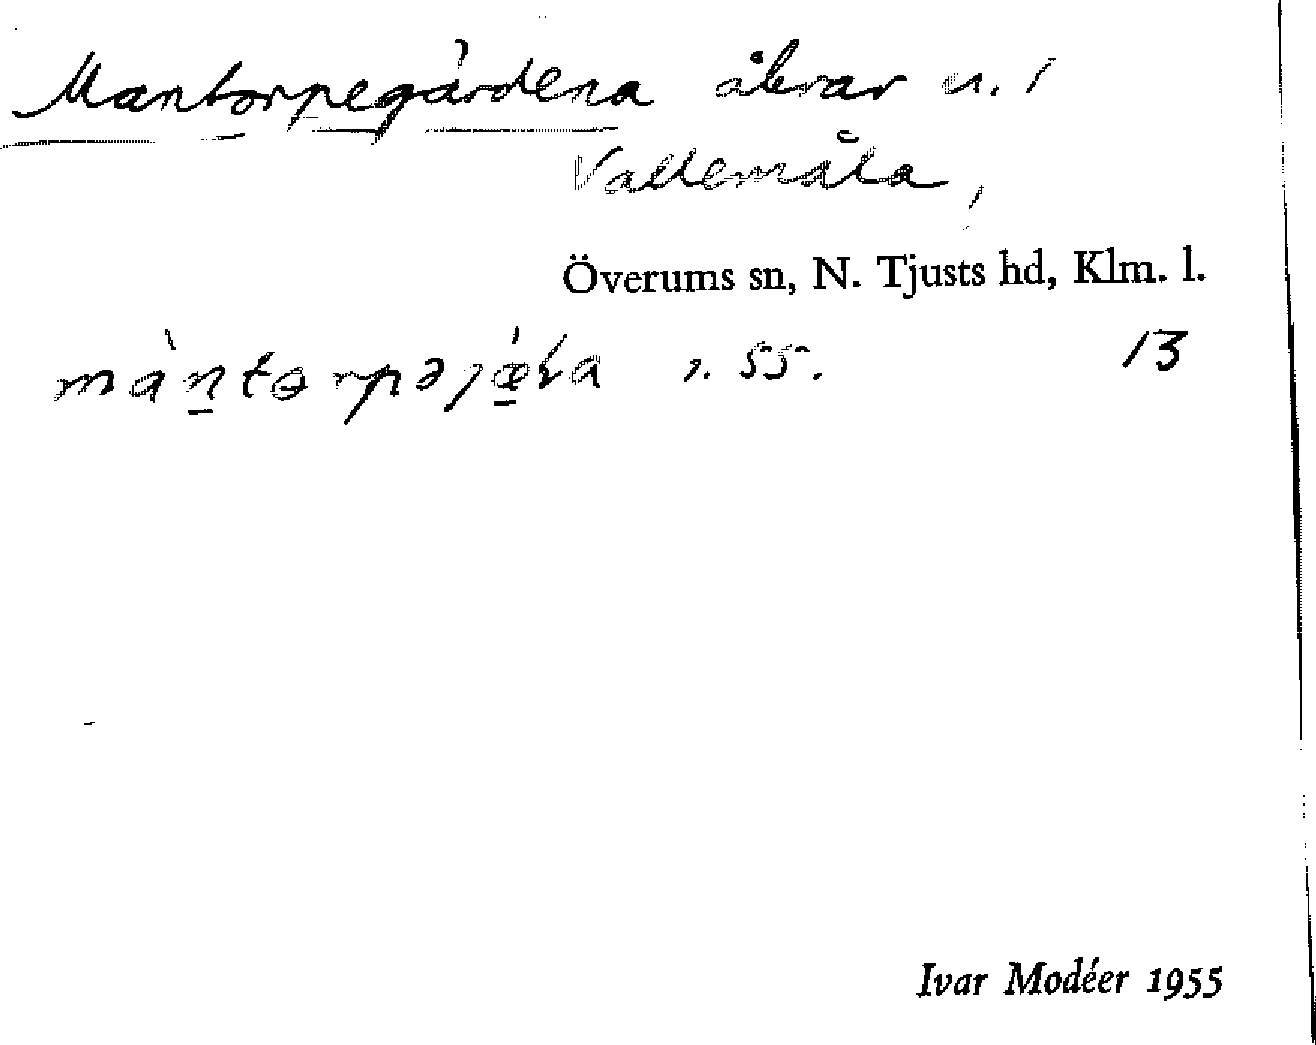 Mantorpegärdena åkrar n. i
Vallemåla,
Överums sn, N. Tjusts hd, Klm. l.
s. 55. 13
Ivar Modéer 1955